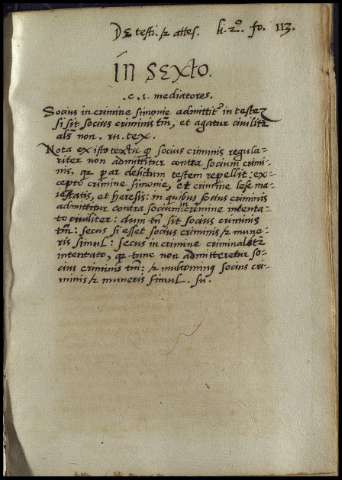 De testi. & attes. li. 2º. fo. 113.
IN SEXTO.
.c. 1. mediatores.
Socius in crimine simonie admittitur in testem
si sit socius criminis tm, et agatur civiliter
als non. ru. tex.
Nota ex isto textu q socius criminis regula-
riter non admittitur contra socium crimi-
nis, qr par delictum testem repellit: ex-
cepto crimine simonie, et crimine lese ma-
iestatis, et heresis: in quibus socius criminis
admittitur contra socium crimine intenta-
to civiliter: dum tn sit socius criminis
tm: secus si esset socius criminis & mune-
ris simul: secus in crimine criminaliter
intentato, qr tunc non admitteretur so-
cius criminis tm: & multominus socius cri-
minis & muneris simul.